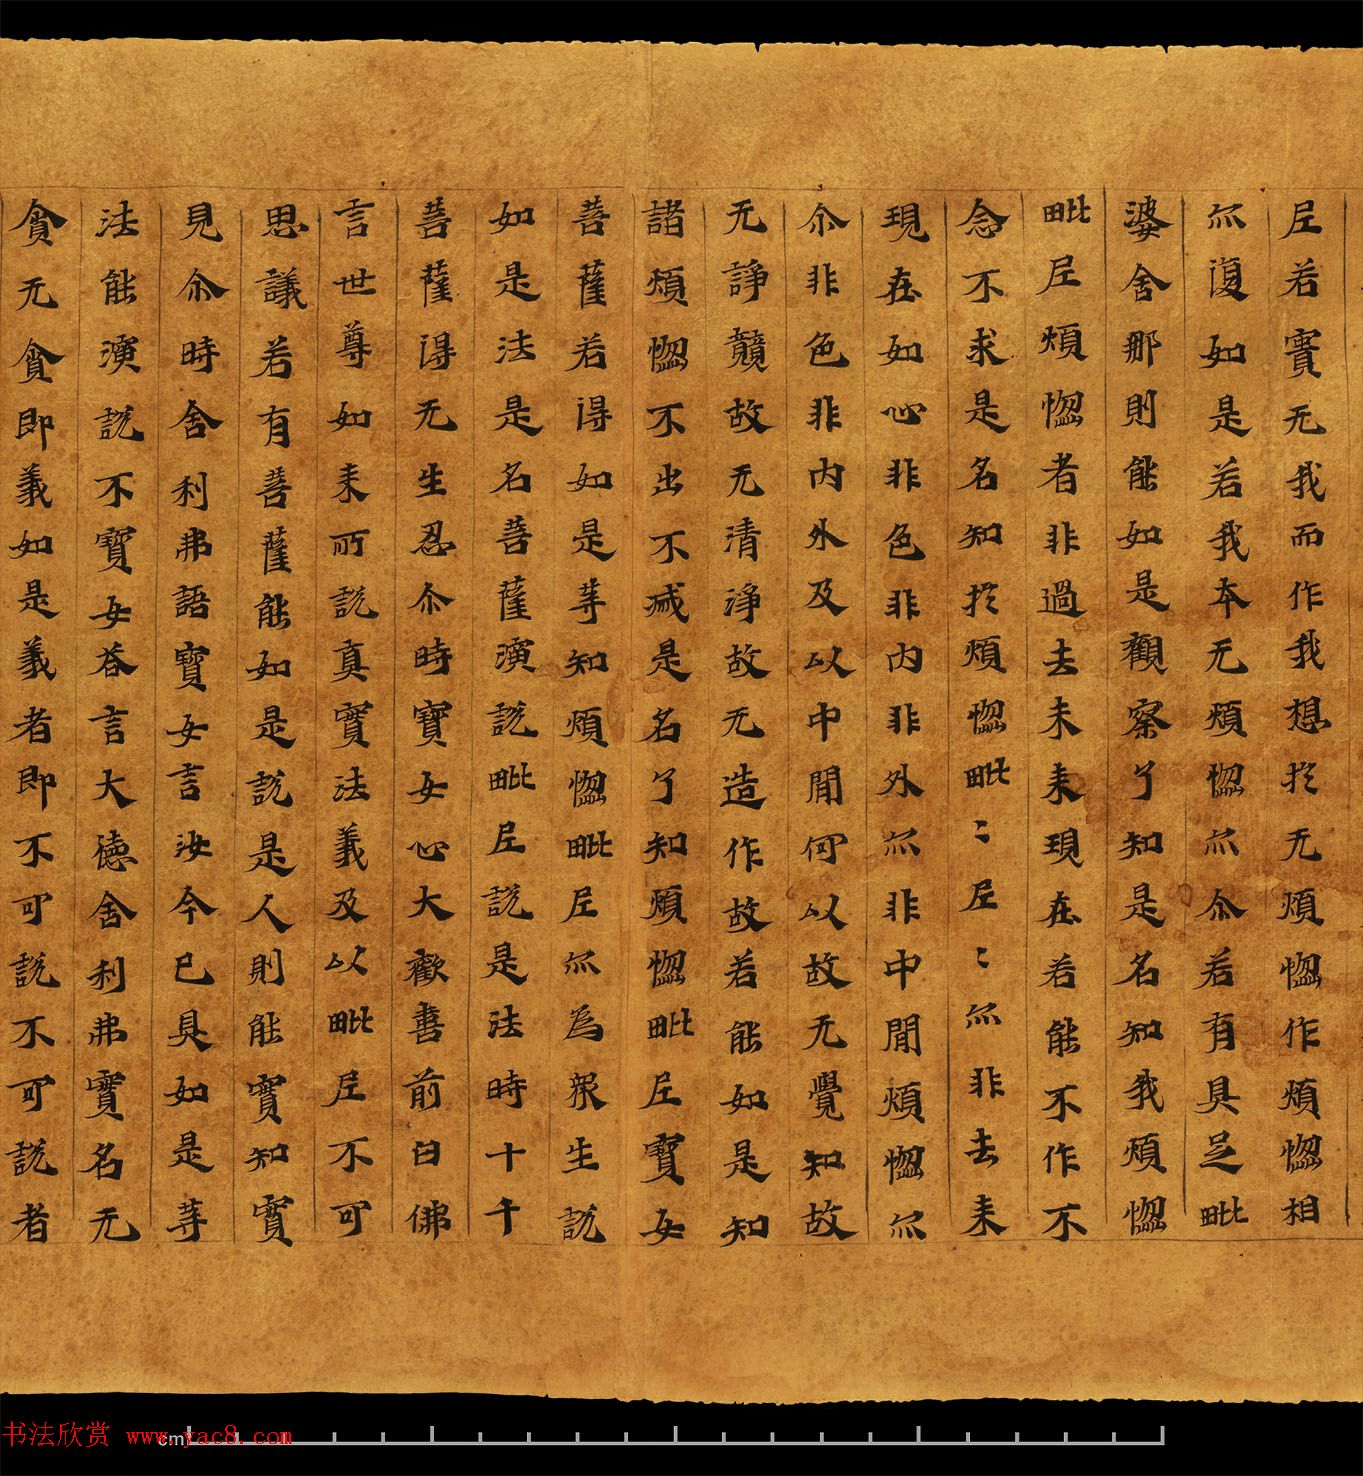 尼若實无我而作我想於无煩惚作煩惚相
尒復如是若我本无煩惚尒尒若有具足毗
婆舍那則能如是觀察了知是名知我煩惚
毗尼煩惚者非過去未来現在若能不作不
念不求是名知於煩惚毗〻尼〻尒非去来
現在如心非色非内非外尒非中間煩惚尒
尒非色非内外及以中間何以故无覺知故
无諍競故无清淨故无造作故若能如是知
諸煩惚不出不滅是名了知煩惚毗尼寶女
菩薩若得如是等知煩惚毗尼尒為衆生説
如是法是名菩薩演説毗尼説是法時十千
菩薩得无生忍尒時寶女心大歡喜前白佛
言世尊如来所説真實法義及以毗尼不可
思議若有菩薩能如是説是人則能實知實
見尒時舍利弗語寶女言汝今已具如是等
法能演説不寶女荅言大德舍利弗實名无
貪无貪即義如是義者即不可説不可説者
cm
书法欣赏 www.yac8.com